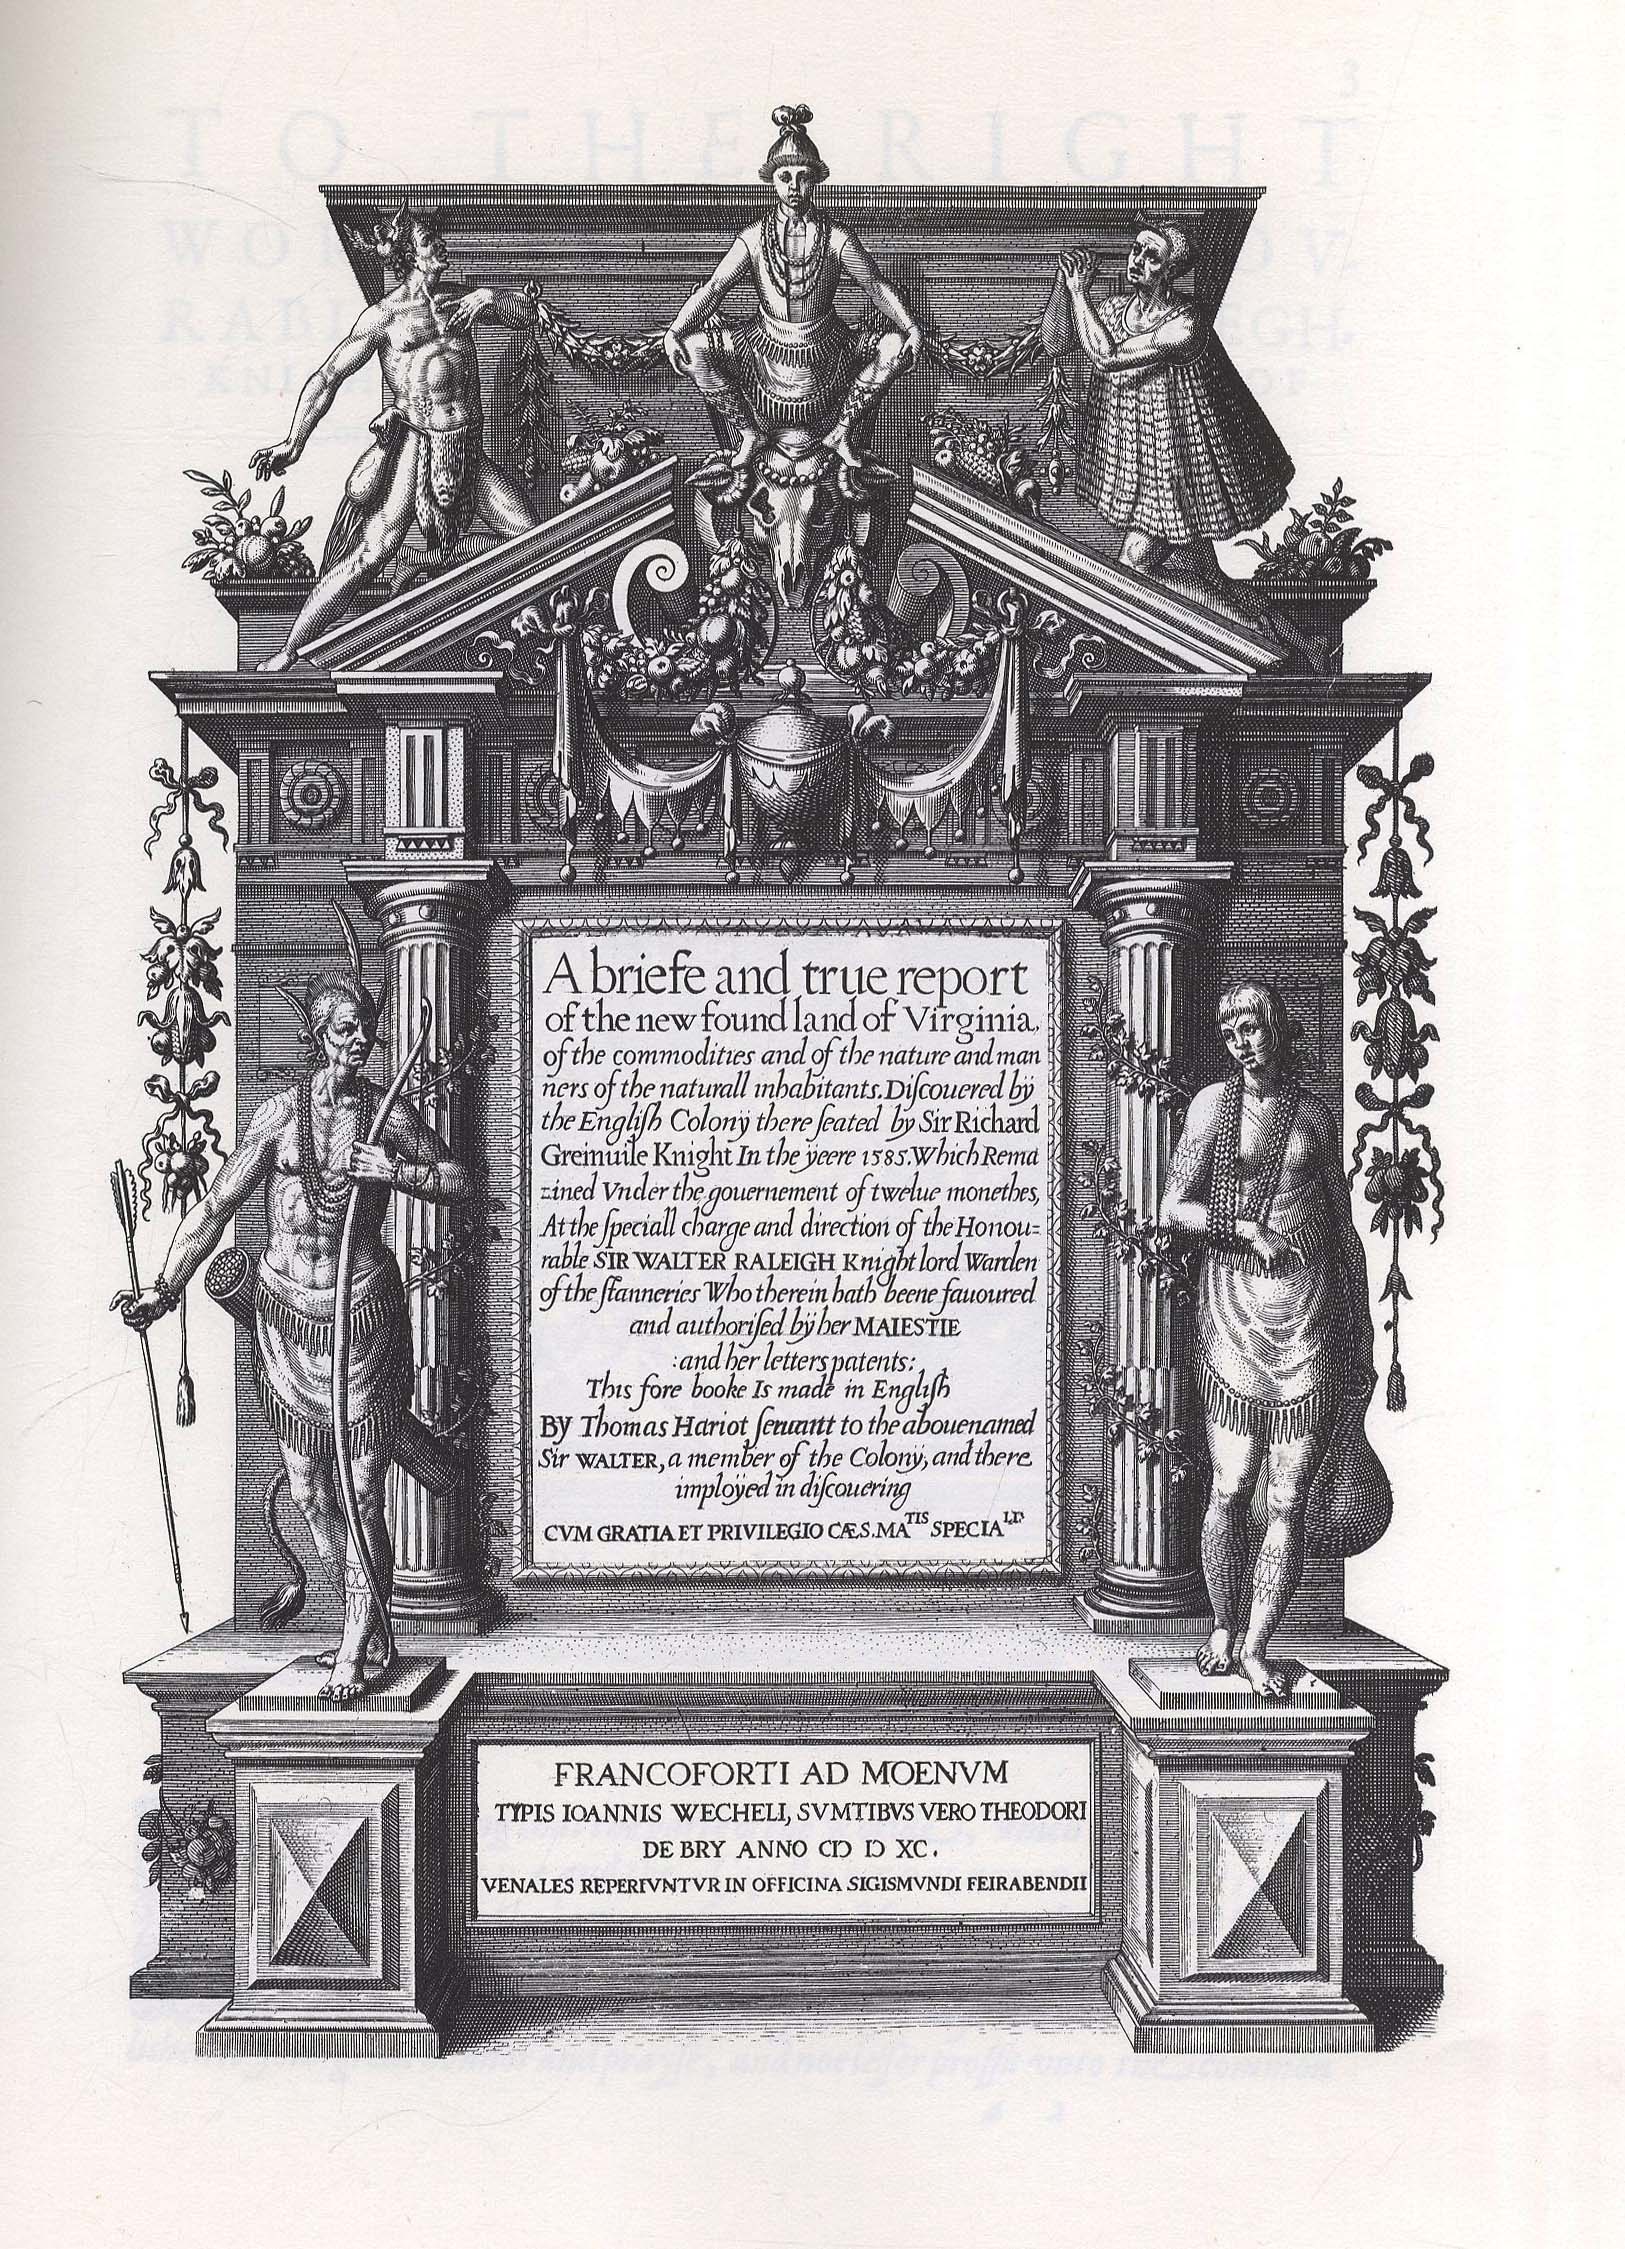 A briefe and true report
of the new found land of Virginia,
of the commodities and of the nature and man
ners of the naturall inhabitants. Diſcouered bÿ
the Engliſh Colonÿ there ſeated by Sir Richard
Greinuile Knight In the ÿeere 1585. Which Rema
=ined Vnder the gouernement of twelue monethes,
At the ſpeciall charge and direction of the Honou=
rable SIR WALTER RALEIGH Knight lord Warden
of the ſtanneries Who therein hath beene fauoured
and authoriſed bÿ her MAIESTIE
:and her letters patents:
This fore booke Is made in Engliſh
By Thomas Hariot ſeruant to the abouenamed
Sir WALTER, a member of the Colonÿ, and there
imploÿed in diſcouering
CVM GRATIA ET PRIVILEGIO CÆS. MATIS SPECIALI
FRANCOFORTI AD MOENVM
TYPIS IOANNIS WECHELI, SVMTIBVS VERO THEODORI
DE BRY ANNO CIƆ IƆ XC.
VENALES REPERIVNTVR IN OFFICINA SIGISMVNDI FEIRABENDII
3
TO THE RIGHT